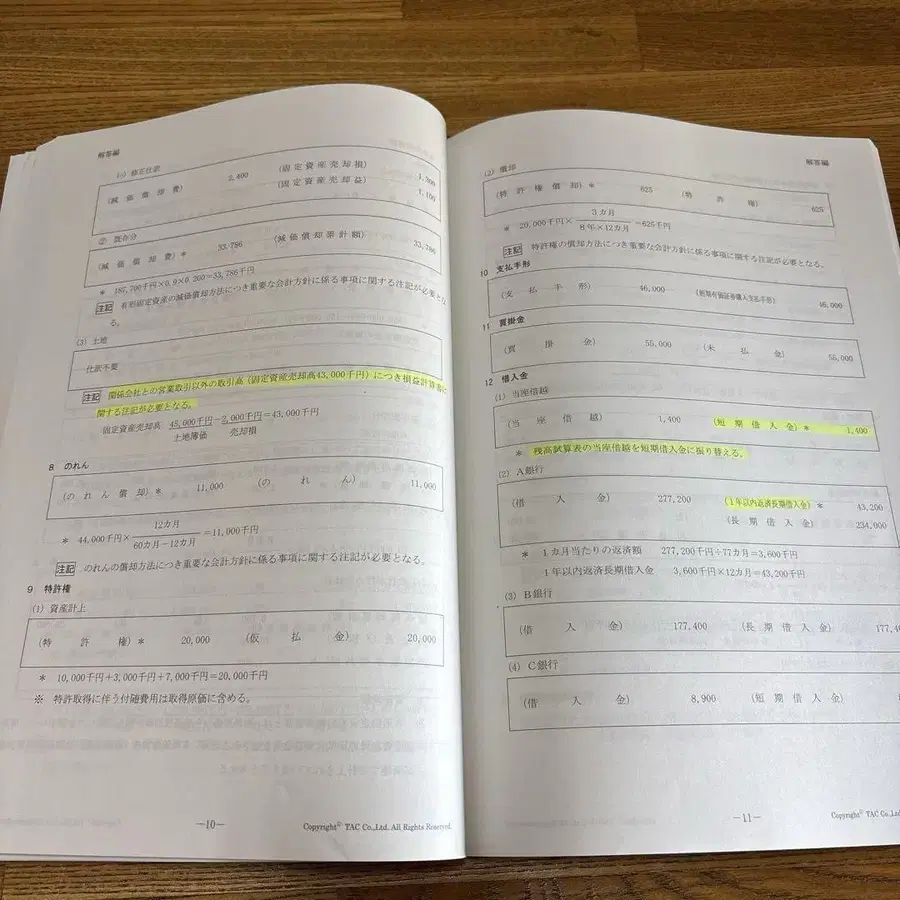 解答編
(ハ) 修正仕訳
(減価償却費) 2,400 (固定資産売却損) 1,300
(固定資産売却益) 1,100
② 既存分
(減価償却費)* 33,786 (減価償却累計額) 33,786
* 187,700千円×0.9×0.200=33,786千円
注記 有形固定資産の減価償却方法につき重要な会計方針に係る事項に関する注記が必要とな
る。
(3) 土地
仕訳不要
注記 関係会社との営業取引以外の取引高(固定資産売却高43,000千円)につき損益計算書に
関する注記が必要となる。
固定資産売却高 45,000千円-2,000千円=43,000千円
土地簿価 売却損
8 のれん
(のれん償却)* 11,000 (のれん) 11,000
* 44,000千円× 12カ月 / 60カ月-12カ月 =11,000千円
注記 のれんの償却方法につき重要な会計方針に係る事項に関する注記が必要となる。
9 特許権
(1) 資産計上
(特許権)* 20,000 (仮払金) 20,000
* 10,000千円+3,000千円+7,000千円=20,000千円
※ 特許取得に伴う付随費用は取得原価に含める。
-10-
Copyright© TAC Co.,Ltd. All Rights Reserved.
解答編
(2) 償却
(特許権償却)* 625 (特許権) 625
* 20,000千円× 3カ月 / 8年×12カ月 =625千円
注記 特許権の償却方法につき重要な会計方針に係る事項に関する注記が必要となる。
10 支払手形
(支払手形) 46,000 (短期有価証券購入支払手形) 46,000
11 買掛金
(買掛金) 55,000 (未払金) 55,000
12 借入金
(1) 当座借越
(当座借越) 1,400 (短期借入金)* 1,400
* 残高試算表の当座借越を短期借入金に振り替える。
(2) A銀行
(借入金) 277,200 (1年以内返済長期借入金)* 43,200
(長期借入金) 234,000
* 1カ月当たりの返済額 277,200千円÷77カ月=3,600千円
1年以内返済長期借入金 3,600千円×12カ月=43,200千円
(3) B銀行
(借入金) 177,400 (長期借入金) 177,4
(4) C銀行
(借入金) 8,900 (短期借入金)
-11-
Copyright© TAC Co.,Ltd